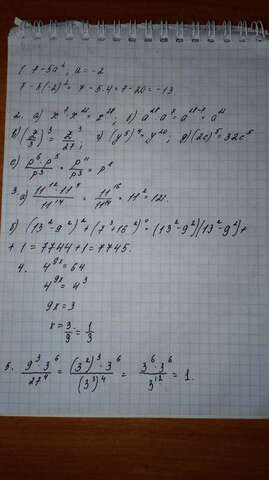 1. 7-5a², a = -2
7-5(-2)² = 7-5·4 = 7-20 = -13
2. a)
б) (z/3)³ = z³/27; г) (y⁵)⁴ = y²⁰; д) (2c)⁵ = 32c⁵
e) p⁶·p⁵/p³ = p¹¹/p³ = p⁸
3. a) 11¹²·11⁴/11¹⁴ = 11¹⁶/11¹⁴ = 11² = 121.
б) (13²-9²)²+(7³+16²)⁰ = (13²-9²)(13²-9²)+
+1 = 7744+1 = 7745.
4. 4⁹ˣ = 64
4⁹ˣ = 4³
9x = 3
x = 3/9 = 1/3
5. 9³·3⁶/27⁴ = (3²)³·3⁶/(3³)⁴ = 3⁶·3⁶/3¹² = 1.